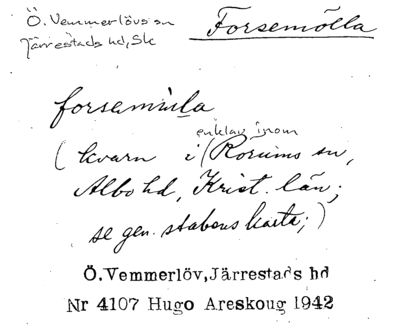 Ö. Vemmerlövs sn
Järrestads hd, Sk
Forsemölla
forsemüla
enklav inom
(kvarn i Rörums sn,
Albo hd, Krist. län;
se gen. stabens karta;)
Ö.Vemmerlöv,Järrestads hd
Nr 4107 Hugo Areskoug 1942